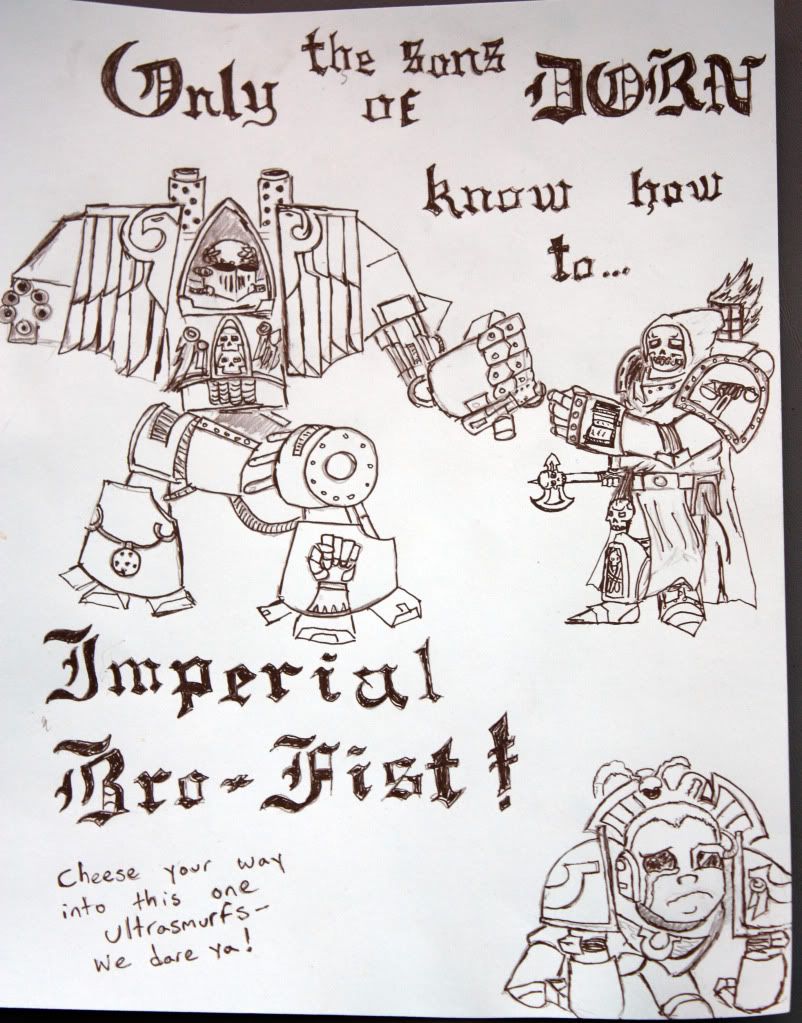 Only the sons of DORN
know how
to...
Imperial
Bro-Fist!
Cheese your way
into this one
ultrasmurfs-
we dare ya!